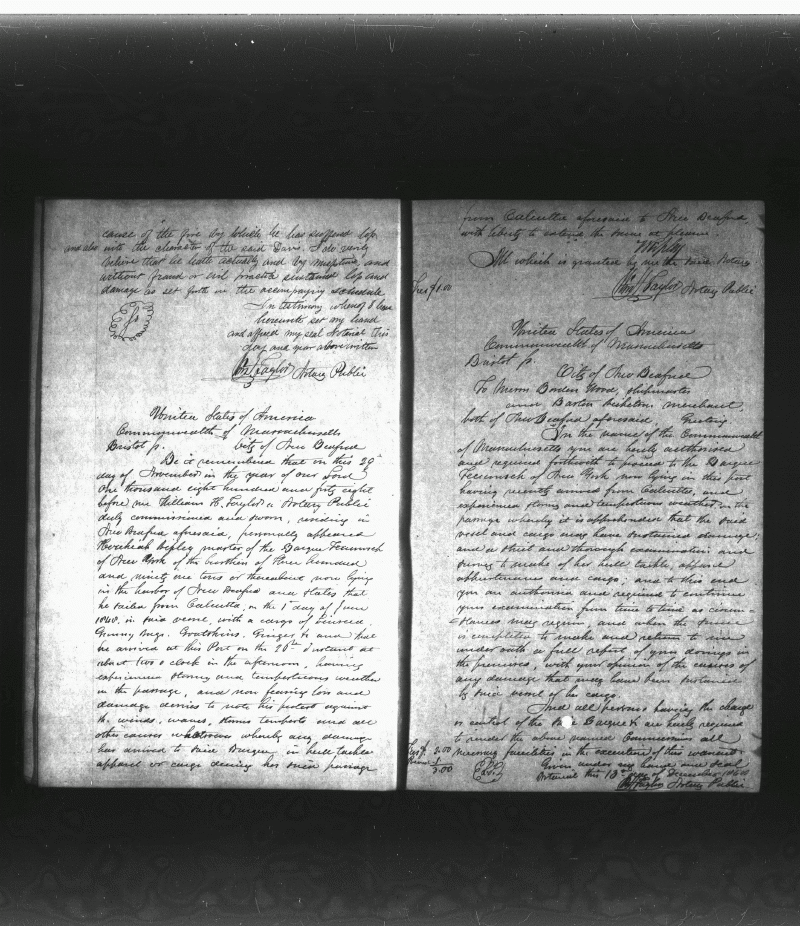 cause of the fire by which he has suffered loss
and also with the character of the said Davis. I do verily
believe that he hath actually and by misfortune and
without fraud or evil practice sustained loss and
damage as set forth in the accompanying schedule
In testimony whereof I have
hereunto set my hand
and affixed my seal Notarial this
day and year above written
Wm H Taylor Notary Public
United States of America
Commonwealth of Massachusetts
Bristol ss. City of New Bedford
Be it remembered that on this 20th
day of November in the year of our Lord
One thousand eight hundred and forty eight
before me William H. Taylor a Notary Public
duly commissioned and sworn, residing in
New Bedford aforesaid, personally appeared
master of the Barque
of New York of the burthen of three hundred
and ninety one tons or thereabout now lying
in the harbor of New Bedford and states that
he sailed from Calcutta, on the 1st day of June
1848, in said vessel, with a cargo of linseed,
Gunny Bags, Goatskins, Ginger, & and that
he arrived at this Port on the 20th Instant at
about two o clock in the afternoon, having
experienced stormy and tempestuous weather
on the passage, and now fearing loss and
damage desires to note his protest against
the winds, waves, storms tempests and all
other causes whatsoever whereby any damage
has arrived to said Barque, in hull tackle
apparel or cargo during her said passage
from Calcutta aforesaid to New Bedford
with liberty to extend the same at pleasure.
All which is granted by me the said Notary.
Fees $1.00
Wm H Taylor Notary Public
United States of America
Commonwealth of Massachusetts
Bristol ss.
City of New Bedford
To Messrs Borden Wood, shipmaster
and Barton Ricketson, merchant,
both of New Bedford aforesaid, Greeting
In the name of the Commonwealth
of Massachusetts you are hereby authorised
and required forthwith to proceed to the Barque
of New York now lying in this port
having recently arrived from Calcutta, and
experienced stormy and tempestuous weather on the
passage whereby it is apprehended that the said
vessel and cargo may have sustained damage;
and a strict and thorough examination and
survey to make of her hull tackle, apparel
appurtenances and cargo, and to this end
you are authorised and required to continue
your examination from time to time as circum-
=stances may require, and when the same
is completed to make and return to me
under oath a full report of your doings in
the premises, with your opinion of the causes of
any damage that may have been sustained
by said vessel or her cargo.
And all persons having the charge
or control of the said Barque & are hereby required
to render the above named Commissioners all
necessary facilities in the execution of this warrant.
Given under my hand and seal
Notarial this day of December 1848
Wm H Taylor Notary Public
2.00
1
3.00